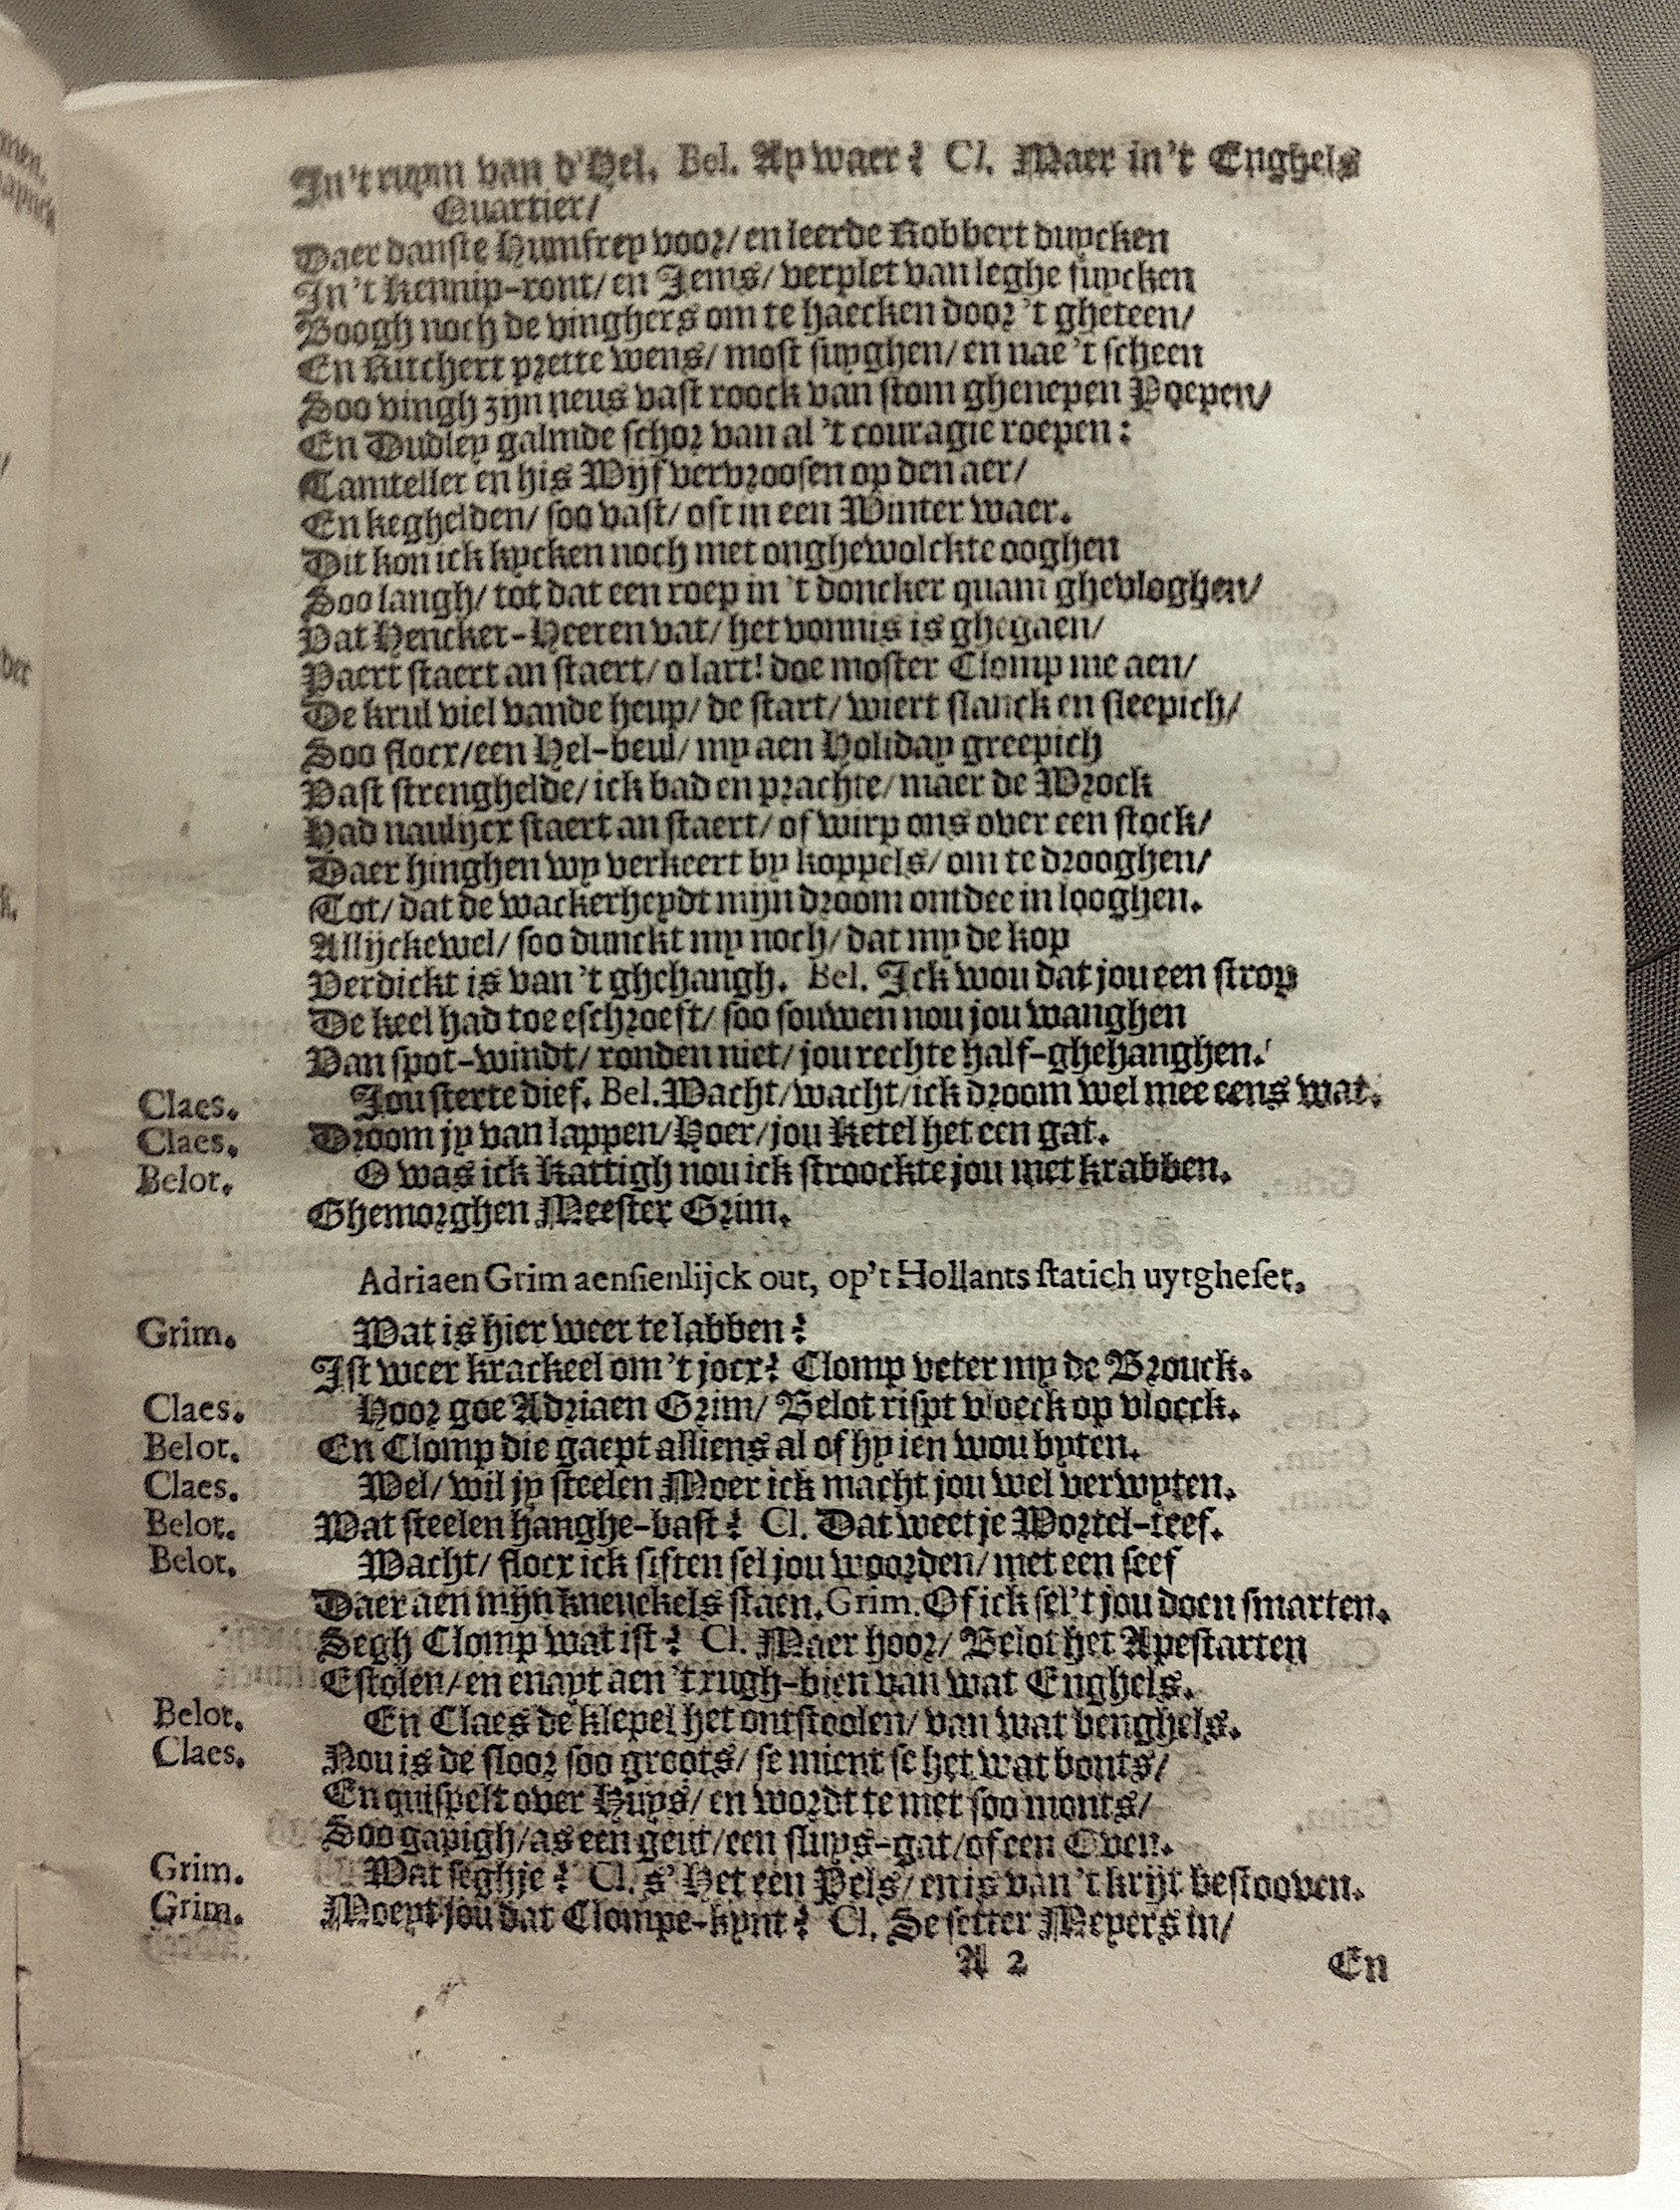 In't ruym van d'Hel. Bel. Ay waer? Cl. Maer in't Enghels
Quartier/
Daer danste Humfrey voor/ en leerde Robbert duycken
In't kennip-ront/ en Jems/ verplet van leghe fuycken
Boogh noch de vinghers om te haecken door 't gheteen/
En Ritchert prette wens/ most suyghen/ en nae 't scheen
Soo vingh zijn neus vast roock van stom ghenepen Poepen/
En Dudley galmde schor van al 't couragie roepen:
Tamteller en his Wijf vervroosen op den aer/
En keghelden/ soo vast/ oft in een Winter waer.
Dit kon ick kycken noch met onghewolckte ooghen
Soo langh/ tot dat een roep in 't doncker quam ghevloghen/
Vat Hencker-Heeren vat/ het vonnis is ghegaen/
Paert staert an staert/ o lart! doe moster Clomp me aen/
De krul viel vande heup/ de start/ wiert slanck en sleepich/
Soo flocx/ een Hel-beul/ my aen Holiday greepich
Vast strenghelde/ ick bad en prachte/ maer de Wrock
Had naulijcx staert an staert/ of wirp ons over een stock/
Daer hinghen wy verkeert by koppels/ om te drooghen/
Tot/ dat de wackerheydt mijn droom ontdee in looghen.
Allijckewel/ soo dunckt my noch/ dat my de kop
Verdickt is van 't ghehangh. Bel. Ick wou dat jou een strop
De keel had toe eschroeft/ soo souwen nou jou wanghen
Van spot-windt/ ronden niet/ jou rechte half-ghehanghen.
Claes. Jou sterte dief. Bel. Wacht/ wacht/ ick droom wel mee eens wat.
Claes. Droom jy van lappen/ Hoer/ jou ketel het een gat.
Belot. O was ick Kattigh nou ick stroockte jou met krabben.
Ghemorghen Meester Grim.
Adriaen Grim aensienlijck out, op't Hollants statich uytgheset.
Grim. Wat is hier weer te labben?
Ist weer krackeel om 't jocx? Clomp veter my de Brouck.
Claes. Hoor goe Adriaen Grim/ Belot rispt vloeck op vloeck.
Belot. En Clomp die gaept alliens al of hy ien wou byten.
Claes. Wel/ wil jy steelen Moer ick macht jou wel verwyten.
Belot. Wat steelen hanghe-bast? Cl. Dat weet je Wortel-teef.
Belot. Wacht/ flocx ick siften sel jou woorden/ met een seef
Daer aen mijn kneuckels staen. Grim. Of ick sel't jou doen smarten.
Segh Clomp wat ist? Cl. Maer hoor/ Belot het Apestarten
Estolen/ en enayt aen 't rugh-bien van wat Enghels.
Belot. En Claes de klepel het ontstoolen/ van wat benghels.
Claes. Nou is de sloor soo groots/ se mient se het wat bonts/
En quispelt over Huys/ en wordt te met soo monts/
Soo gapigh/ as een geut/ een sluys-gat/ of een Oven.
Grim. Wat seghje? Cl. s' Het een Pels/ en is van 't krijt bestooven.
Grim. Moeyt jou dat Clompe-kynt? Cl. Se setter Meyers in/
A 2 En